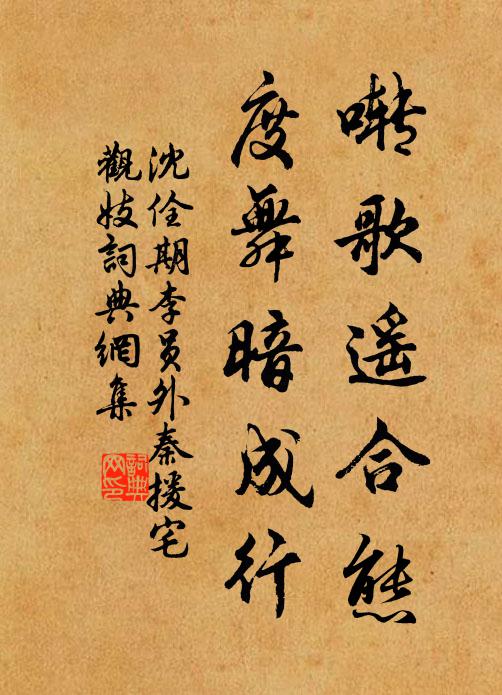 啭歌遥合態
度舞暗成行
沈佺期李员外秦援宅
觀妓詞典網集
詞典网印